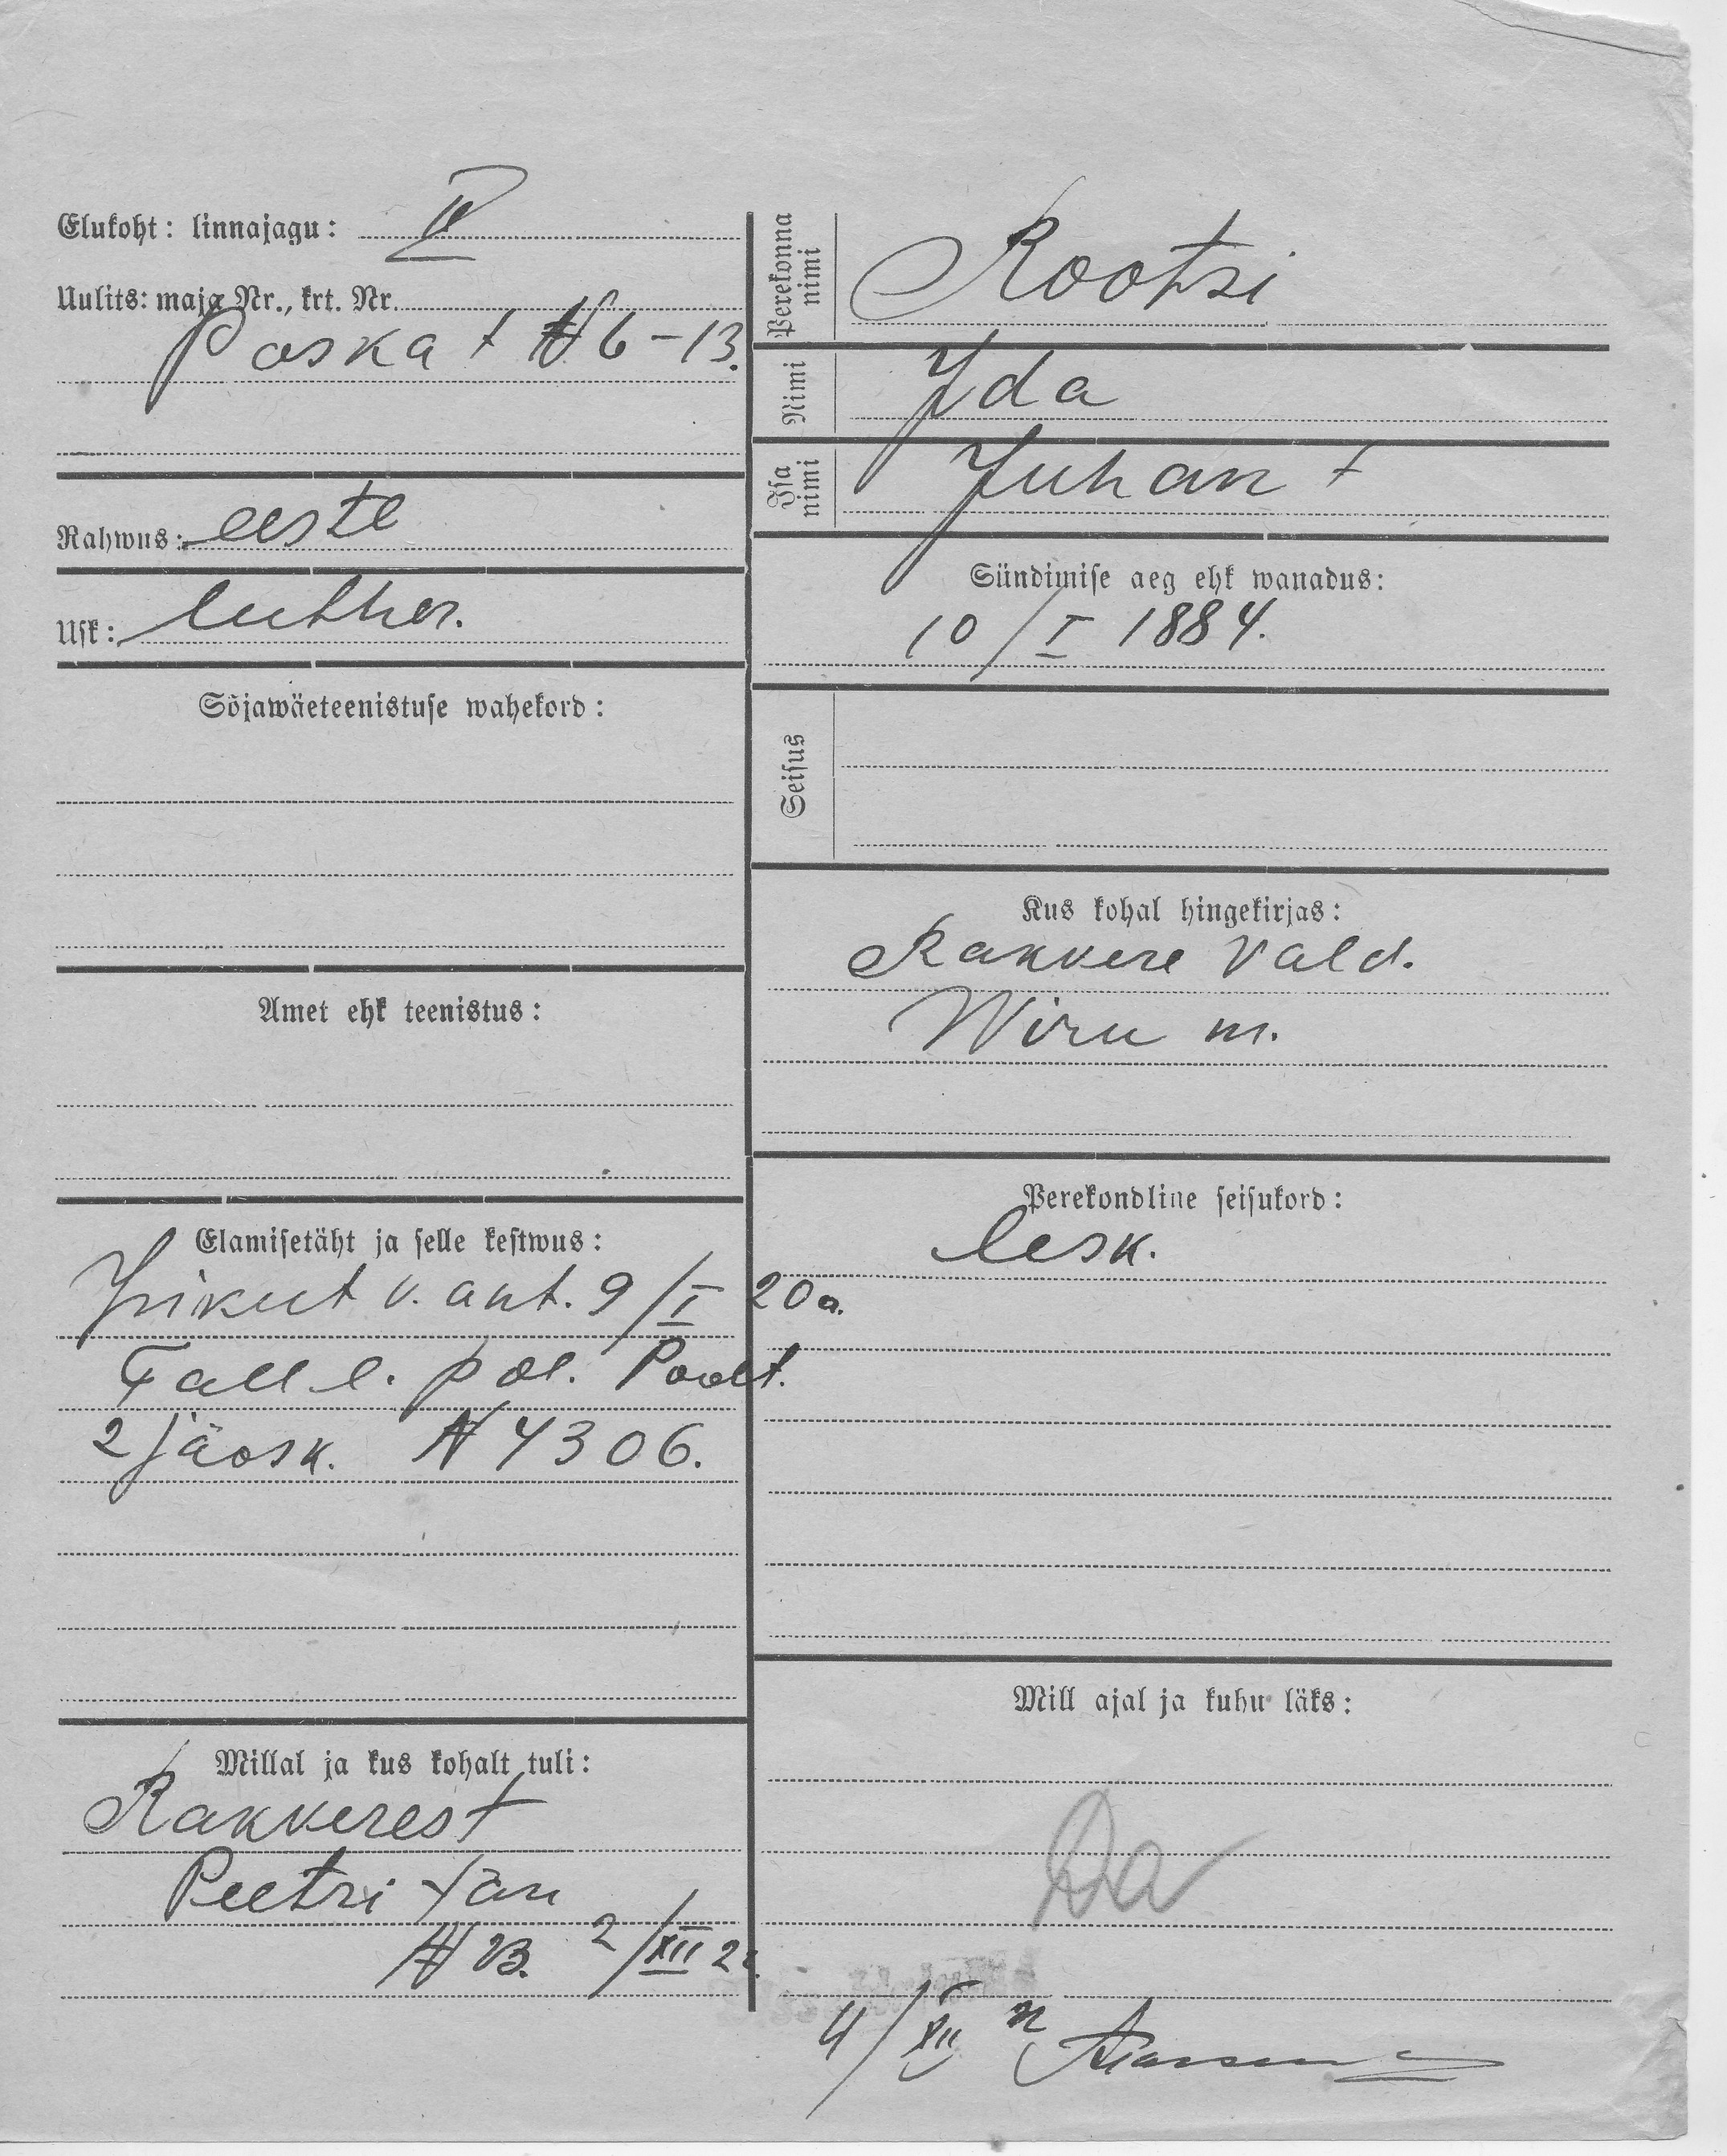 Elukoht: linnajagu: II
Uulits: maja Nr., krt. Nr.
Poska t № 6-13.
Rahwus: eestl
Usk: luther.
Sõjawäeteenistuse wahekord:
Amet ehk teenistus:
Elamisetäht ja selle kestwus:
Isikut v. ant. 9/I 20 a.
Tall l. pol. Poolt.
2 jäosk. № 4306.
Millal ja kus kohalt tuli:
Rakverest
Peetri tän
№ 13. 2/XII 22.
Perekonna nimi
Rootsi
Nimi
Ida
Isa nimi
Juhan t
Sündimise aeg ehk wanadus:
10/I 1884.
Seisus
Kus kohal hingekirjas:
Rakvere vald.
Wiru m.
Perekondline seisukord:
lesk.
Mill ajal ja kuhu läks:
4/XII